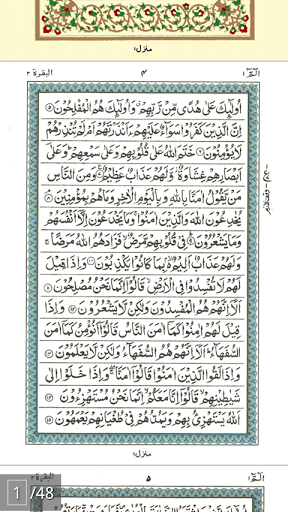 منزل۱
البقرة ۲
۴
الٓمّٓ ۱
اُولٰٓئِكَ عَلٰى هُدًى مِّنْ رَّبِّهِمْ وَاُولٰٓئِكَ هُمُ الْمُفْلِحُوْنَ ۵
اِنَّ الَّذِيْنَ كَفَرُوْا سَوَآءٌ عَلَيْهِمْ ءَاَنْذَرْتَهُمْ اَمْ لَمْ تُنْذِرْهُمْ
لَا يُؤْمِنُوْنَ ۶ خَتَمَ اللّٰهُ عَلٰى قُلُوْبِهِمْ وَعَلٰى سَمْعِهِمْ وَعَلٰٓى
اَبْصَارِهِمْ غِشَاوَةٌ وَّلَهُمْ عَذَابٌ عَظِيْمٌ ۷ وَمِنَ النَّاسِ
مَنْ يَّقُوْلُ اٰمَنَّا بِاللّٰهِ وَبِالْيَوْمِ الْاٰخِرِ وَمَا هُمْ بِمُؤْمِنِيْنَ ۸
يُخٰدِعُوْنَ اللّٰهَ وَالَّذِيْنَ اٰمَنُوْا وَمَا يَخْدَعُوْنَ اِلَّآ اَنْفُسَهُمْ
وَمَا يَشْعُرُوْنَ ۹ فِيْ قُلُوْبِهِمْ مَّرَضٌ فَزَادَهُمُ اللّٰهُ مَرَضًا
وَلَهُمْ عَذَابٌ اَلِيْمٌۢ بِمَا كَانُوْا يَكْذِبُوْنَ ۱۰ وَاِذَا قِيْلَ
لَهُمْ لَا تُفْسِدُوْا فِي الْاَرْضِ قَالُوْٓا اِنَّمَا نَحْنُ مُصْلِحُوْنَ ۱۱
اَلَآ اِنَّهُمْ هُمُ الْمُفْسِدُوْنَ وَلٰكِنْ لَّا يَشْعُرُوْنَ ۱۲ وَاِذَا
قِيْلَ لَهُمْ اٰمِنُوْا كَمَآ اٰمَنَ النَّاسُ قَالُوْٓا اَنُؤْمِنُ كَمَآ اٰمَنَ
السُّفَهَآءُ اَلَآ اِنَّهُمْ هُمُ السُّفَهَآءُ وَلٰكِنْ لَّا يَعْلَمُوْنَ ۱۳
وَاِذَا لَقُوا الَّذِيْنَ اٰمَنُوْا قَالُوْٓا اٰمَنَّا وَاِذَا خَلَوْا اِلٰى
شَيٰطِيْنِهِمْ قَالُوْٓا اِنَّا مَعَكُمْ اِنَّمَا نَحْنُ مُسْتَهْزِءُوْنَ ۱۴
اَللّٰهُ يَسْتَهْزِئُ بِهِمْ وَيَمُدُّهُمْ فِيْ طُغْيَانِهِمْ يَعْمَهُوْنَ ۱۵
منزل۱
البقرة ۲
۵
الٓمّٓ ۱
1 /48